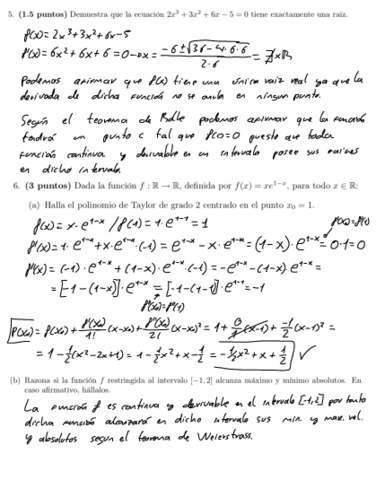 5. (1.5 puntos) Demuestra que la ecuación 2x³ + 3x² + 6x − 5 = 0 tiene exactamente una raíz.
f(x) = 2x³+3x²+6x-5
f'(x) = 6x²+6x+6 = 0 → x = (-6±√(36-4·6·6))/(2·6) = ∄x∈ℝ
Podemos afirmar que f(x) tiene una única raíz real ya que la
derivada de dicha función no se anula en ningún punto.
Según el teorema de Rolle podemos afirmar que la función
tendrá un punto c tal que f(c)=0 puesto que toda
función continua y derivable en un intervalo posee sus raíces
en dicho intervalo
6. (3 puntos) Dada la función f : ℝ → ℝ, definida por f(x) = xe¹⁻ˣ, para todo x ∈ ℝ:
(a) Halla el polinomio de Taylor de grado 2 centrado en el punto x₀ = 1.
f(x) = x·e¹⁻ˣ / f(1) = 1·e¹⁻¹ = 1
f'(x₀)=f'(1)
f'(x) = 1·e¹⁻ˣ + x·e¹⁻ˣ·(-1) = e¹⁻ˣ - x·e¹⁻ˣ = (1-x)·e¹⁻ˣ = 0·1 = 0
f''(x) = (-1)·e¹⁻ˣ + (1-x)·e¹⁻ˣ·(-1) = -e¹⁻ˣ - (1-x)·e¹⁻ˣ =
= [-1-(1-x)]·e¹⁻ˣ = [-1-(1-1)]·e¹⁻¹ = -1
f''(x₀)=f''(1)
P(x₀) = f(x₀) + f'(x₀)/1! (x-x₀) + f''(x₀)/2! (x-x₀)² = 1 + 0/1 (x-1) + -1/2 (x-1)² =
= 1 - 1/2(x²-2x+1) = 1 - 1/2x² + x - 1/2 = -1/2x² + x + 1/2 ✓
(b) Razona si la función f restringida al intervalo [−1, 2] alcanza máximo y mínimo absolutos. En
caso afirmativo, hállalos.
La función f es continua y derivable en el intervalo [-1,2] por tanto
dicha función alcanzará en dicho intervalo sus mín. y máx. rel.
y absolutos según el teorema de Weierstrass.